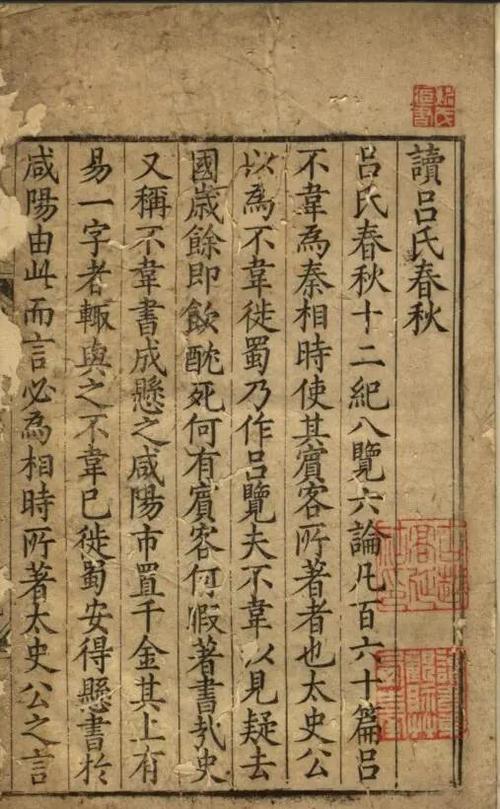 讀呂氏春秋
呂氏春秋十二紀八覽六論凡百六十篇呂
不韋為秦相時使其賓客所著者也太史公
以為不韋徙蜀乃作呂覽夫不韋以見疑去
國歲餘即飲酖死何有賓客何假著書㢤史
又稱不韋書成懸之咸陽市置千金其上有
易一字者輙與之不韋已徙蜀安得懸書於
咸陽由此而言必為相時所著太史公之言